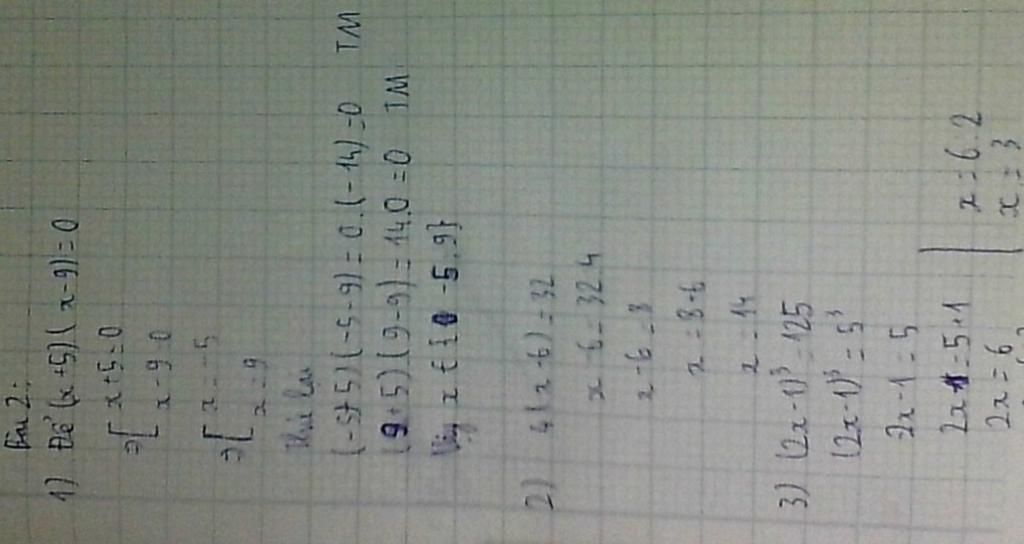 Bài 2:
1) Để (x+5)(x-9)=0
=> [ x+5=0
x-9=0
=> [ x=-5
x=9
Thử lại
(-5+5)(-5-9)=0.(-14)=0 TM
(9+5)(9-9)=14.0=0 TM
Vậy x ∈ { -5, 9}
2) 4(x-6)=32
x-6=32:4
x-6=8
x=8+6
x=14
3) (2x-1)³=125
(2x-1)³=5³
2x-1=5
2x=5+1
2x=6
x=6:2
x=3